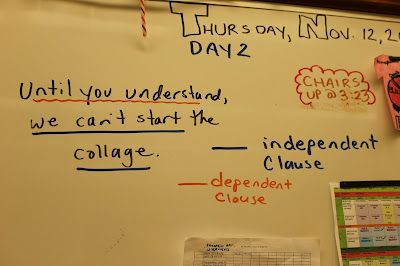 THURSDAY, NOV. 12, 20
DAY 2
CHAIRS
UP @ 3:23
Until you understand,
we can't start the
collage.
independent
Clause
dependent
Clause